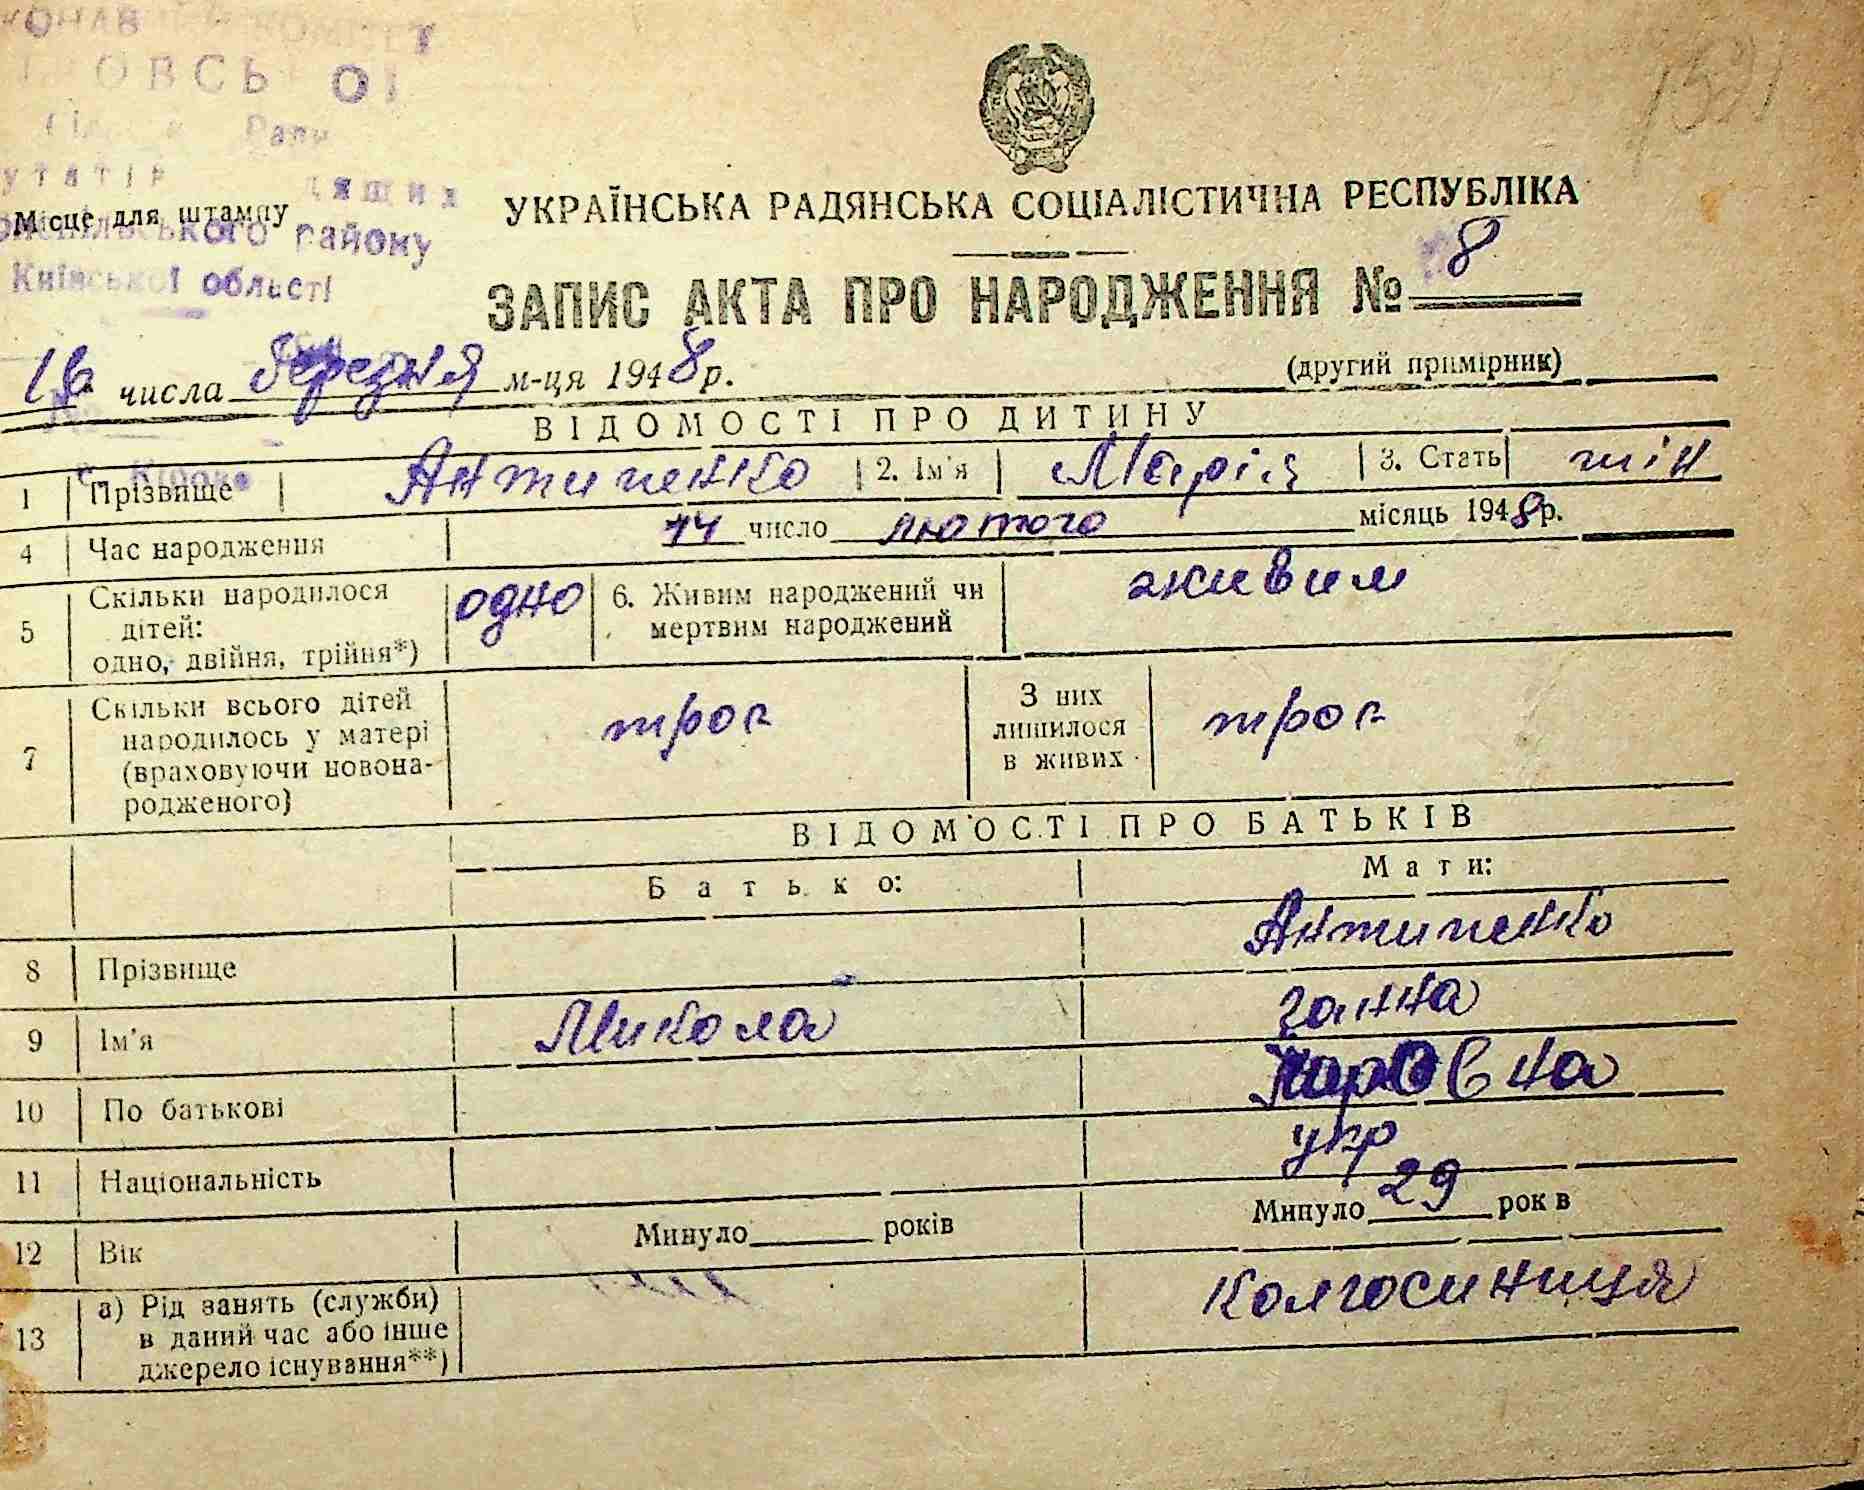 ОВСЬКОЇ
Київської області
Місце для штампу
району
УКРАЇНСЬКА РАДЯНСЬКА СОЦІАЛІСТИЧНА РЕСПУБЛІКА
ЗАПИС АКТА ПРО НАРОДЖЕННЯ № 8
16 числа березня м-ця 1948 р.
(другий примірник)
ВІДОМОСТІ ПРО ДИТИНУ
1 Прізвище Антипенко 2. Ім'я Марія 3. Стать жін
4 Час народження 14 число лютого місяць 1948 р.
5 Скільки народилося дітей: одно, двійня, трійня*) одно 6. Живим народжений чи мертвим народжений живим
7 Скільки всього дітей народилось у матері (враховуючи новона-родженого) троє З них лишилося в живих троє
ВІДОМОСТІ ПРО БАТЬКІВ
Батько: Мати:
8 Прізвище Антипенко
9 Ім'я Микола Ганна
10 По батькові
11 Національність укр
12 Вік Минуло років Минуло 29 рок в
13 а) Рід занять (служби) в даний час або інше джерело існування**) Колгосниця